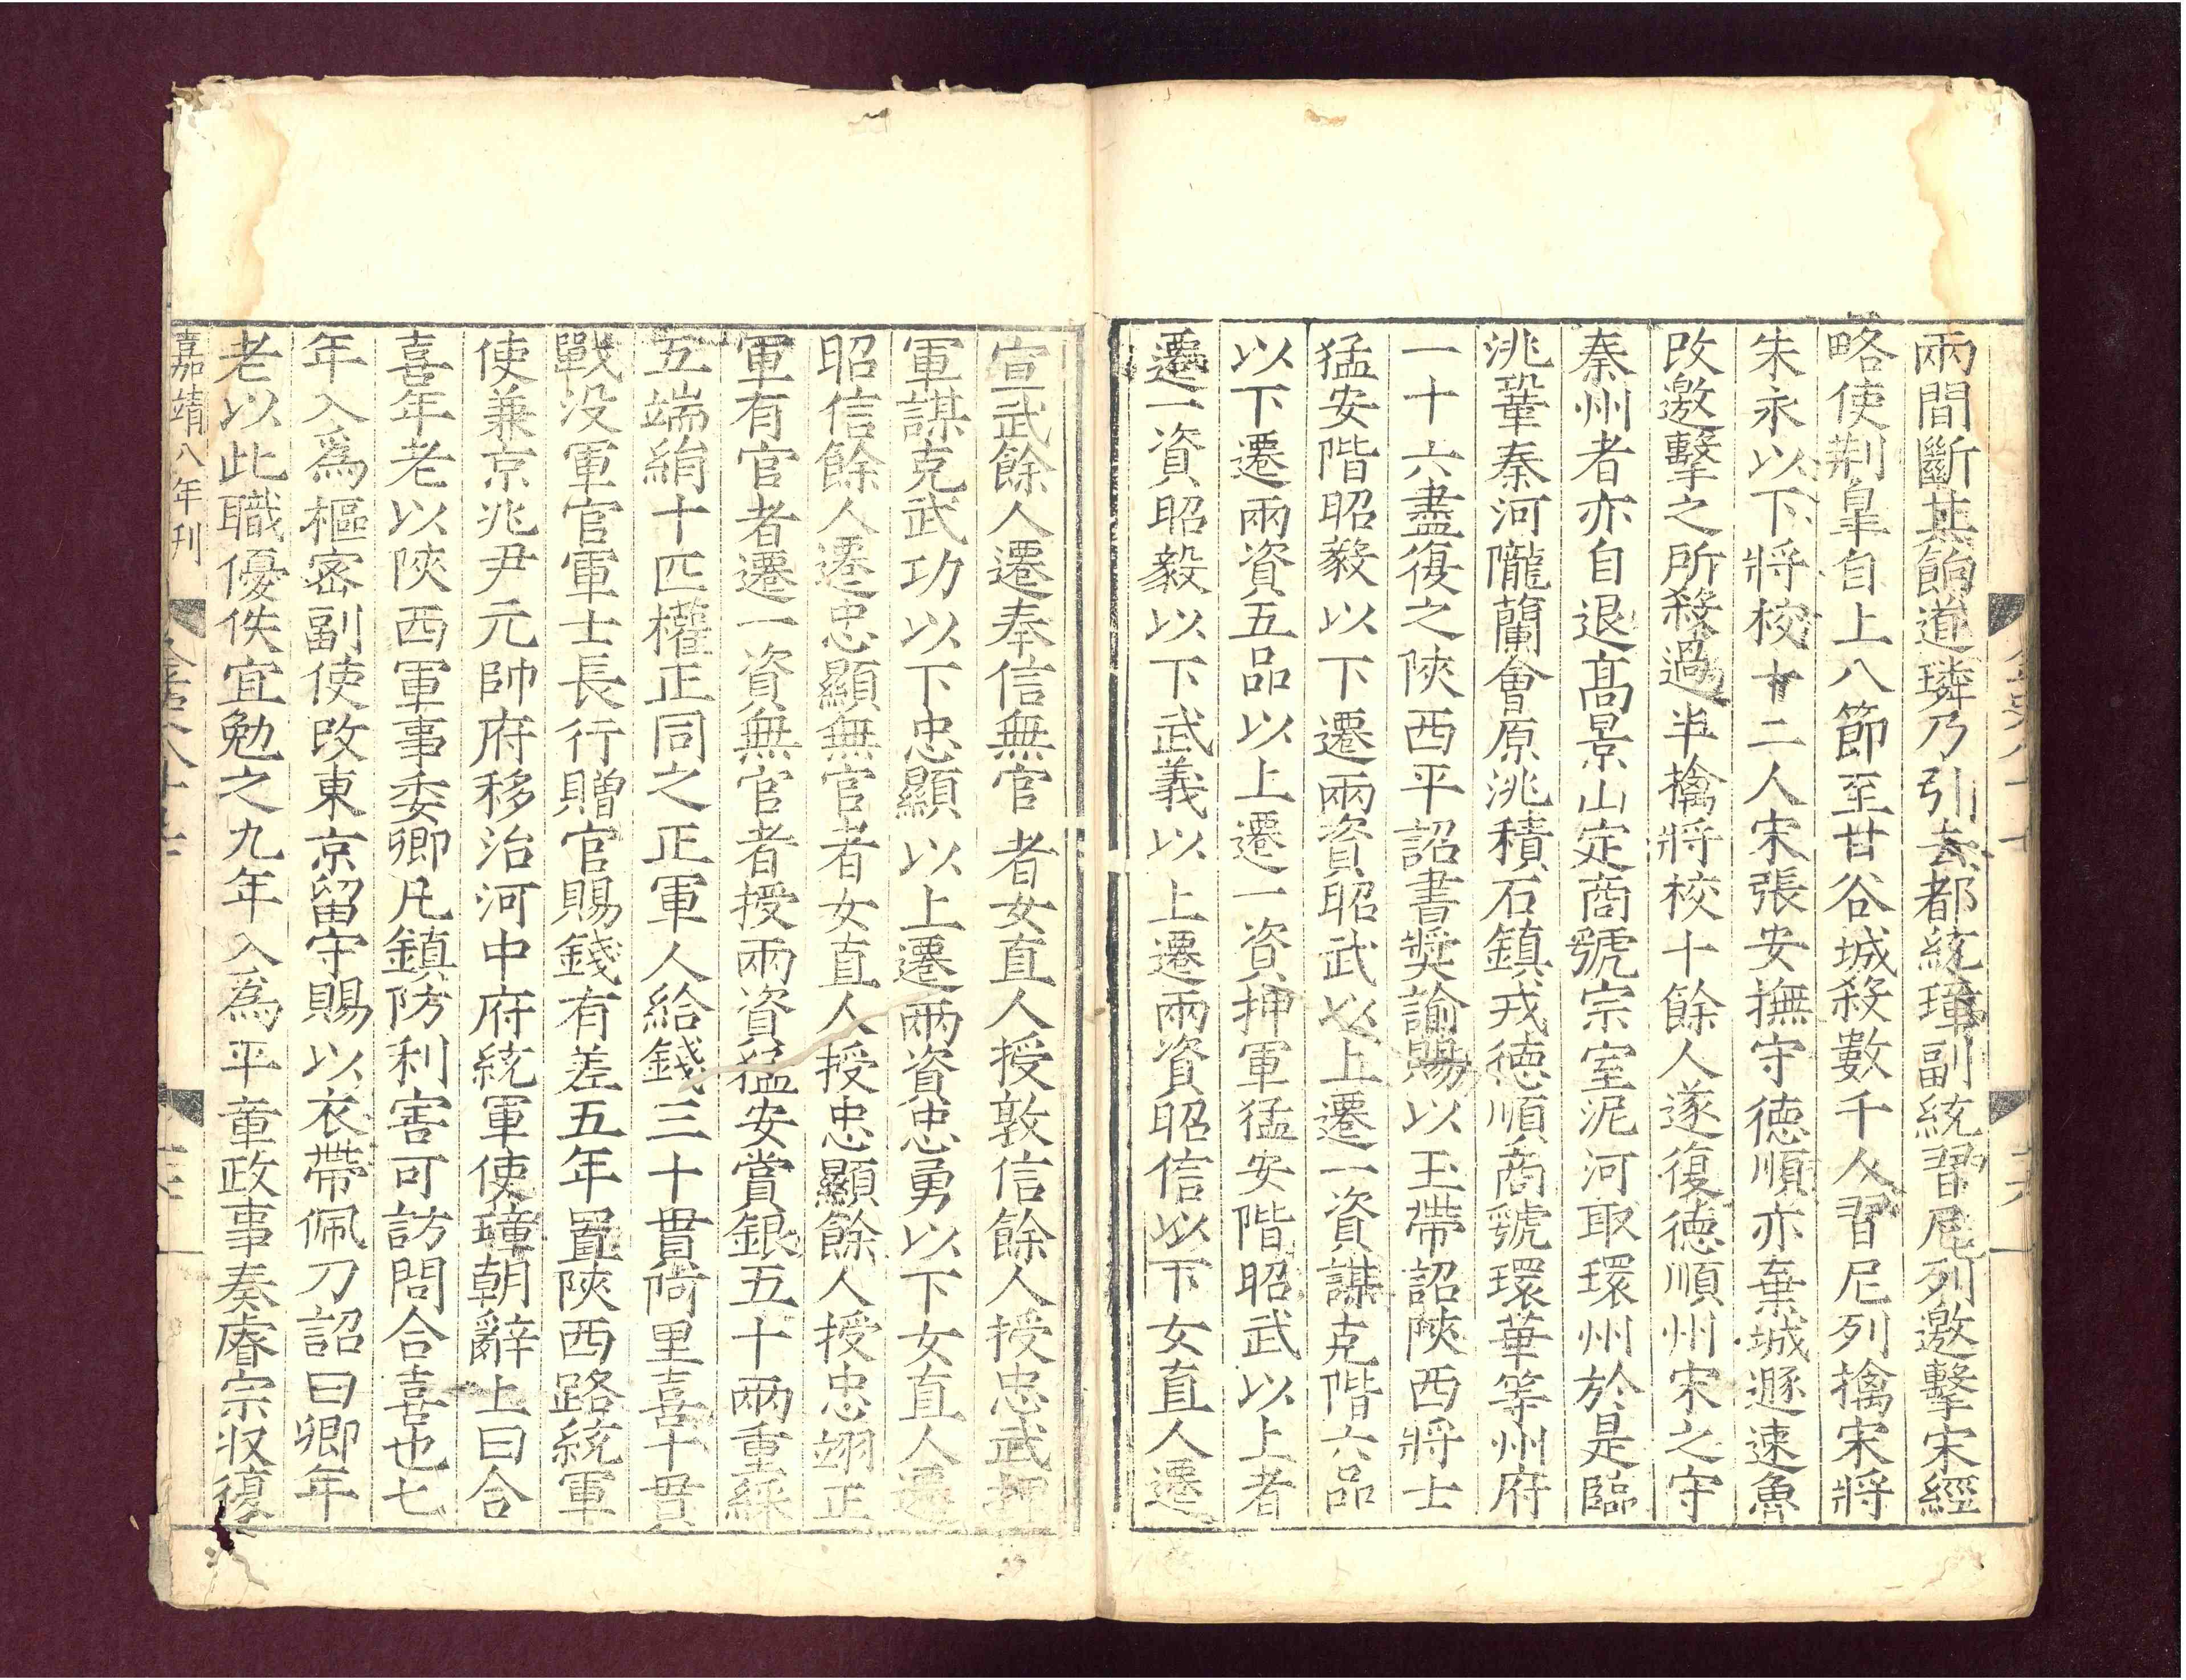 兩間斷其餉道璘乃引去都統璋副統習尼列邀擊宋經
略使荆臯自上八節至甘谷城殺數千人習尼列擒宋將
朱永以下將校十二人宋張安撫守德順亦棄城遯速魯
改邀擊之所殺過半擒將校十餘人遂復德順州宋之守
秦州者亦自退高景山定商虢宗室泥河取環州於是臨
洮鞏秦河隴蘭會原洮積石鎮戎德順商虢環華等州府
一十六盡復之陜西平詔書奬諭賜以玉帶詔陜西將士
猛安階昭毅以下遷兩資昭武以上遷一資謀克階六品
以下遷兩資五品以上遷一資押軍猛安階昭武以上者
遷一資昭毅以下武義以上遷兩資昭信以下女直人遷
宣武餘人遷奉信無官者女直人授敦信餘人授忠武押
軍謀克武功以下忠顯以上遷兩資忠勇以下女直人遷
昭信餘人遷忠顯無官者女直人授忠顯餘人授忠翊正
軍有官者遷一資無官者授兩資猛安賞銀五十兩重綵
五端絹十匹權正同之正軍人給錢三十貫阿里喜十貫
戰没軍官軍士長行贈官賜錢有差五年置陜西路統軍
使兼京兆尹元帥府移治河中府統軍使璋朝辭上曰合
喜年老以陜西軍事委卿凡鎮防利害可訪問合喜也七
年入爲樞密副使改東京留守賜以衣帶佩刀詔曰卿年
老以此職優佚宜勉之九年入爲平章政事奏睿宗収復
嘉靖八年刊